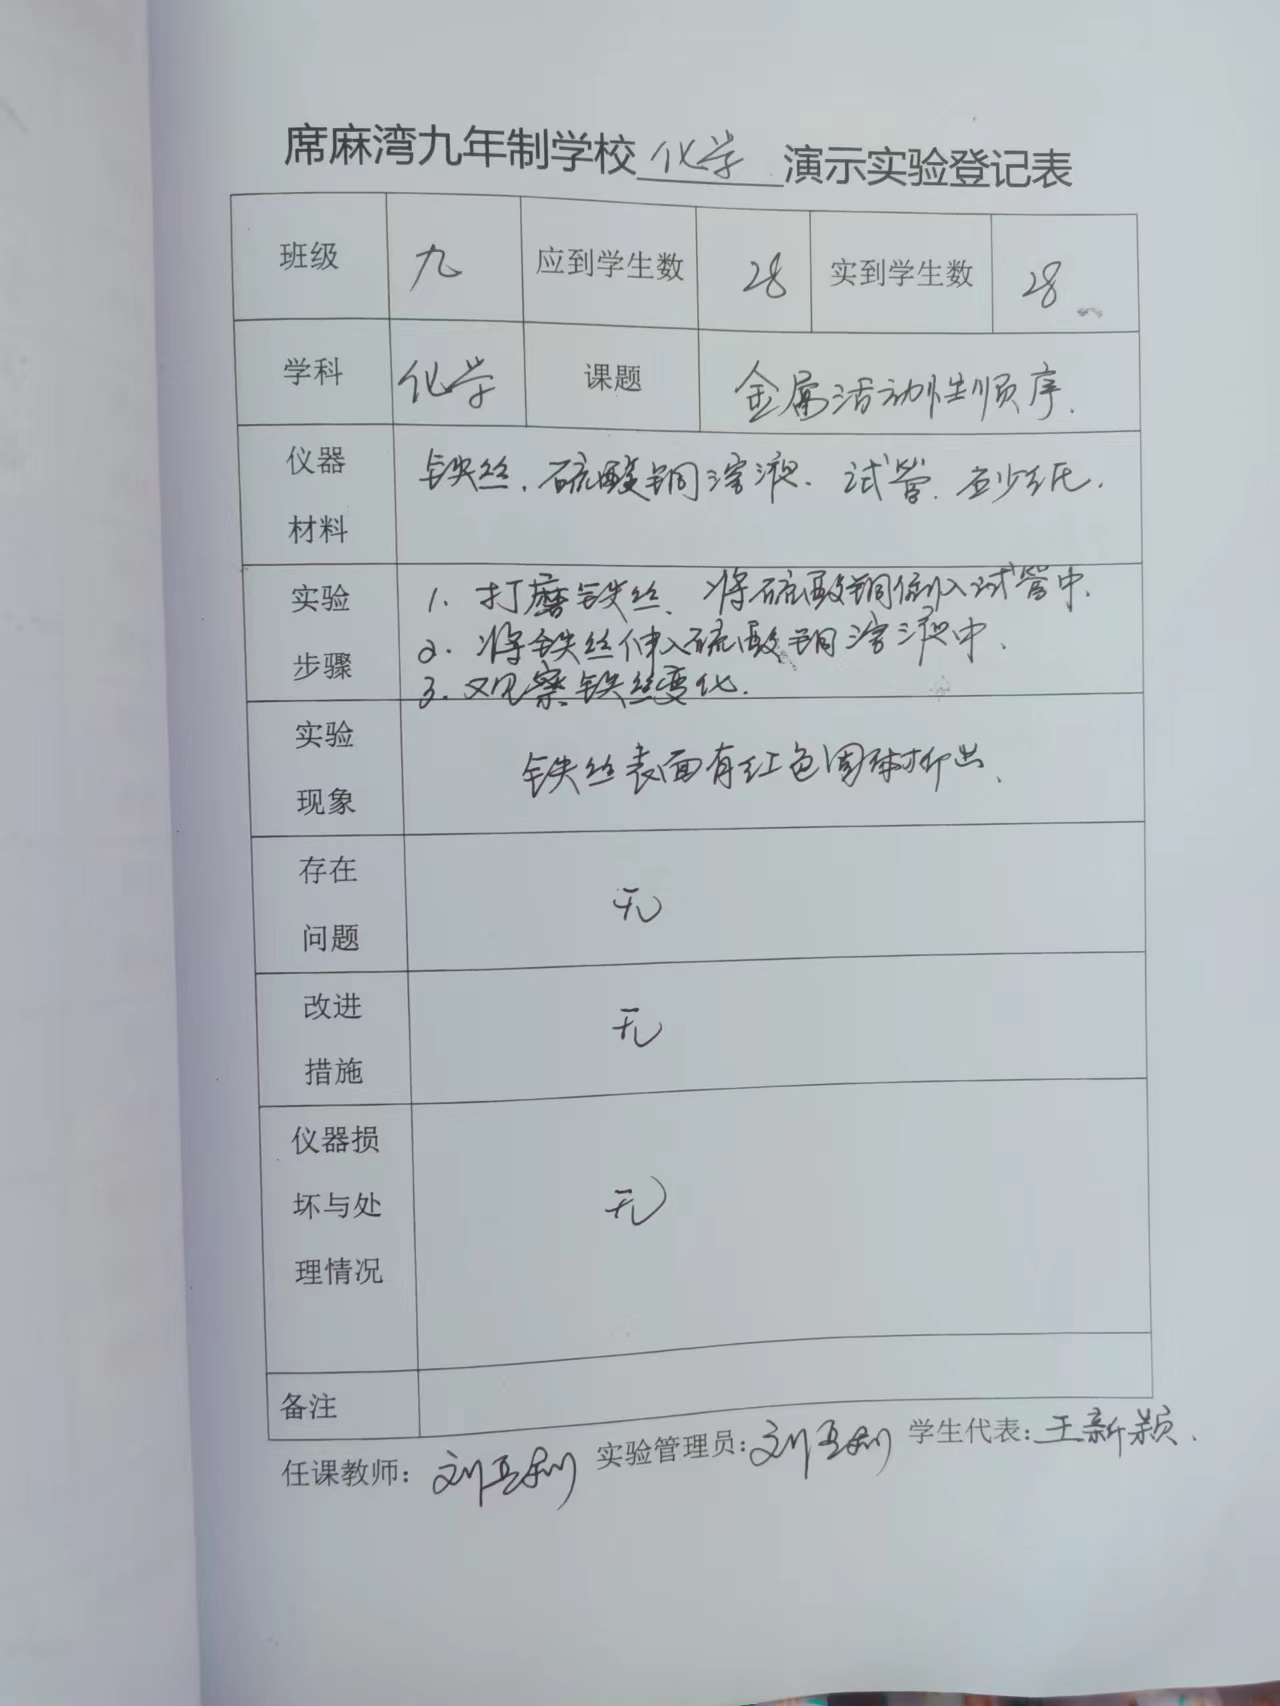 席麻湾九年制学校 化学 演示实验登记表
班级 九 应到学生数 28 实到学生数 28
学科 化学 课题 金属活动性顺序.
仪器 铁丝.硫酸铜溶液.试管.砂纸.
材料
实验 1. 打磨铁丝、将硫酸铜倒入试管中.
步骤 2. 将铁丝伸入硫酸铜溶液中.
3. 观察铁丝变化.
实验 铁丝表面有红色固体析出.
现象
存在
问题 无
改进 无
措施
仪器损
坏与处 无
理情况
备注
任课教师: 刘 实验管理员: 刘 学生代表: 王新颖.